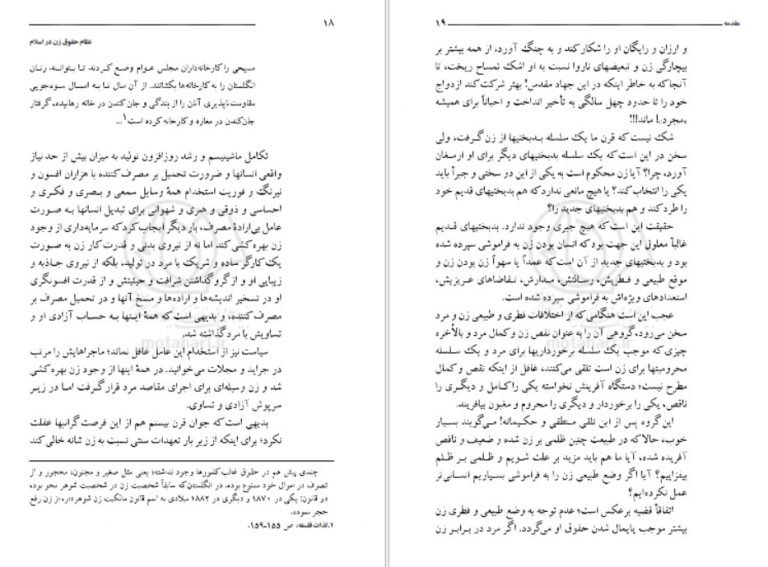 ۱۸
نظام حقوق زن در اسلام
مسیحی را کارخانه‌داران مجلس عوام وضع کردند تا بتوانند زنان
انگلستان را به کارخانه‌ها بکشانند. از آن سال تا به امسال سودجویی
مقاومت‌ناپذیری آنان را از بندگی و جان‌کندن در خانه رهانیده، گرفتار
جان‌کندن در مغازه و کارخانه کرده است۱...
تکامل ماشینیسم و رشد روزافزون تولید به میزان بیش از حد نیاز
واقعی انسانها و ضرورت تحمیل بر مصرف‌کننده با هزاران افسون و
نیرنگ و فوریت استخدام همهٔ وسایل سمعی و بصری و فکری و
احساسی و ذوقی و هنری و شهوانی برای تبدیل انسانها به صورت
عامل بی‌ارادهٔ مصرف، بار دیگر ایجاب کرد که سرمایه‌داری از وجود
زن بهره‌کشی کند اما نه از نیروی بدنی و قدرت کار زن به صورت
یک کارگر ساده و شریک با مرد در تولید، بلکه از نیروی جاذبه و
زیبایی او و از گرو گذاشتن شرافت و حیثیتش و از قدرت افسونگری
او در تسخیر اندیشه‌ها و اراده‌ها و مسخ آنها و در تحمیل مصرف بر
مصرف‌کننده، و بدیهی است که همهٔ اینها به حساب آزادی او و
تساویش با مرد گذاشته شد.
سیاست نیز از استخدام این عامل غافل نماند؛ ماجراهایش را مرتب
در جراید و مجلات می‌خوانید. در همهٔ اینها از وجود زن بهره‌کشی
شد و زن وسیله‌ای برای اجرای مقاصد مرد قرار گرفت اما در زیر
سرپوش آزادی و تساوی.
بدیهی است که جوان قرن بیستم هم از این فرصت گرانبها غفلت
نکرد؛ برای اینکه از زیر بار تعهدات سنتی نسبت به زن شانه خالی کند
چندی پیش هم در حقوق غالب کشورها وجود نداشته؛ یعنی مثل صغیر و مجنون، محجور و از
تصرف در اموال خود ممنوع بوده. در انگلستان که سابقاً شخصیت زن در شخصیت شوهر محو بود،
دو قانون: یکی در ۱۸۷۰ و دیگری در ۱۸۸۲ میلادی به اسم قانون مالکیت زن شوهردار، از زن رفع
حجر نمود».
۱. لذات فلسفه، ص ۱۵۵-۱۵۹.
مقدمه
۱۹
و ارزان و رایگان او را شکار کند و به چنگ آورد، از همه بیشتر بر
بیچارگی زن و تبعیضهای ناروا نسبت به او اشک تمساح ریخت، تا
آنجا که به خاطر اینکه در این جهاد مقدس! بهتر شرکت کند ازدواج
خود را تا حدود چهل سالگی به تأخیر انداخت و احیاناً برای همیشه
«مجرد» ماند!!!
شک نیست که قرن ما یک سلسله بدبختیها از زن گرفت، ولی
سخن در این است که یک سلسله بدبختیهای دیگر برای او ارمغان
آورد، چرا؟ آیا زن محکوم است به یکی از این دو سختی و جبراً باید
یکی را انتخاب کند؟ یا هیچ مانعی ندارد که هم بدبختیهای قدیم خود
را طرد کند و هم بدبختیهای جدید را؟
حقیقت این است که هیچ جبری وجود ندارد. بدبختیهای قدیم
غالباً معلول این جهت بود که انسان بودن زن به فراموشی سپرده شده
بود و بدبختیهای جدید از آن است که عمداً یا سهواً زن بودن زن و
موقع طبیعی و فطریش، رسالتش، مدارش، تقاضاهای غریزیش،
استعدادهای ویژه‌اش به فراموشی سپرده شده است.
عجب این است هنگامی که از اختلافات فطری و طبیعی زن و مرد
سخن می‌رود، گروهی آن را به عنوان نقص زن و کمال مرد و بالأخره
چیزی که موجب یک سلسله برخورداریها برای مرد و یک سلسله
محرومیتها برای زن است تلقی می‌کنند، غافل از اینکه نقص و کمال
مطرح نیست؛ دستگاه آفرینش نخواسته یکی را کامل و دیگری را
ناقص، یکی را برخوردار و دیگری را محروم و مغبون بیافریند.
این گروه پس از این تلقی منطقی و حکیمانه! می‌گویند بسیار
خوب، حالا که در طبیعت چنین ظلمی بر زن شده و ضعیف و ناقص
آفریده شده، آیا ما هم باید مزید بر علت شویم و ظلمی بر ظلم
بیفزاییم؟ آیا اگر وضع طبیعی زن را به فراموشی بسپاریم انسانی‌تر
عمل نکرده‌ایم؟
اتفاقاً قضیه برعکس است؛ عدم توجه به وضع طبیعی و فطری زن
بیشتر موجب پایمال شدن حقوق او می‌گردد. اگر مرد در برابر زن